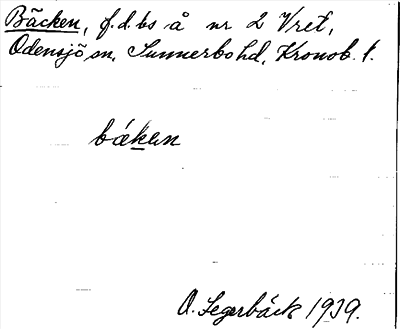 Bäcken, f.d. bs å nr 2 Vret,
Odensjö sn, Sunnerbo hd, Kronob. l.
bäken
O. Segerbäck 1939.